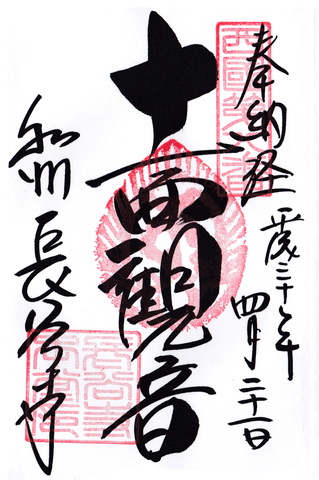 奉納経 平成三十年 四月二十一日
十一面観音
和州 長谷寺